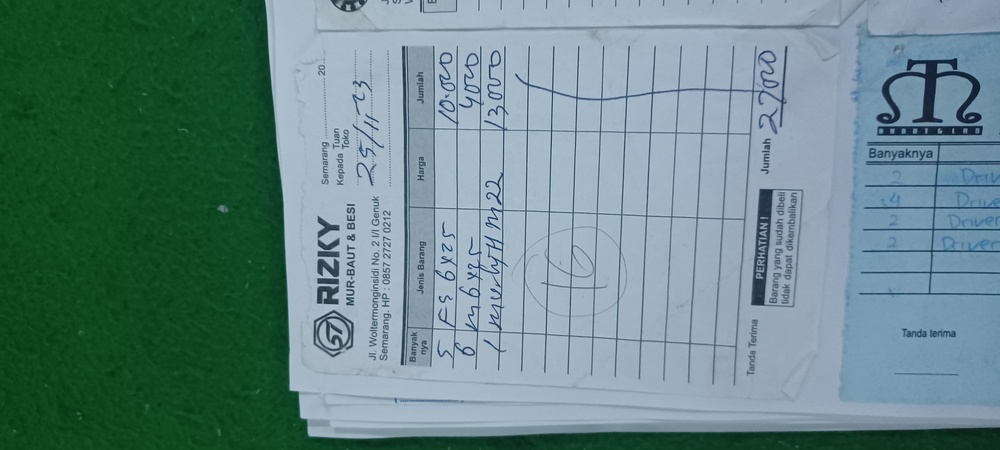 RIZKY
MUR-BAUT & BESI
Jl. Woltermonginsidi No. 2 I/I Genuk
Semarang. HP : 0857 2727 0212
Semarang 20
Kepada Tuan
Toko
25/11-23
Banyak nya Jenis Barang Harga Jumlah
5 FS 6x25 10.000
6 m 6x25 4000
1 m22 13.000
16
Tanda Terima
PERHATIAN !
Barang yang sudah dibeli
tidak dapat dikembalikan
Jumlah 27000
Banyaknya
2 Driv
4 Drive
2 Driver
2 Driver
Tanda terima